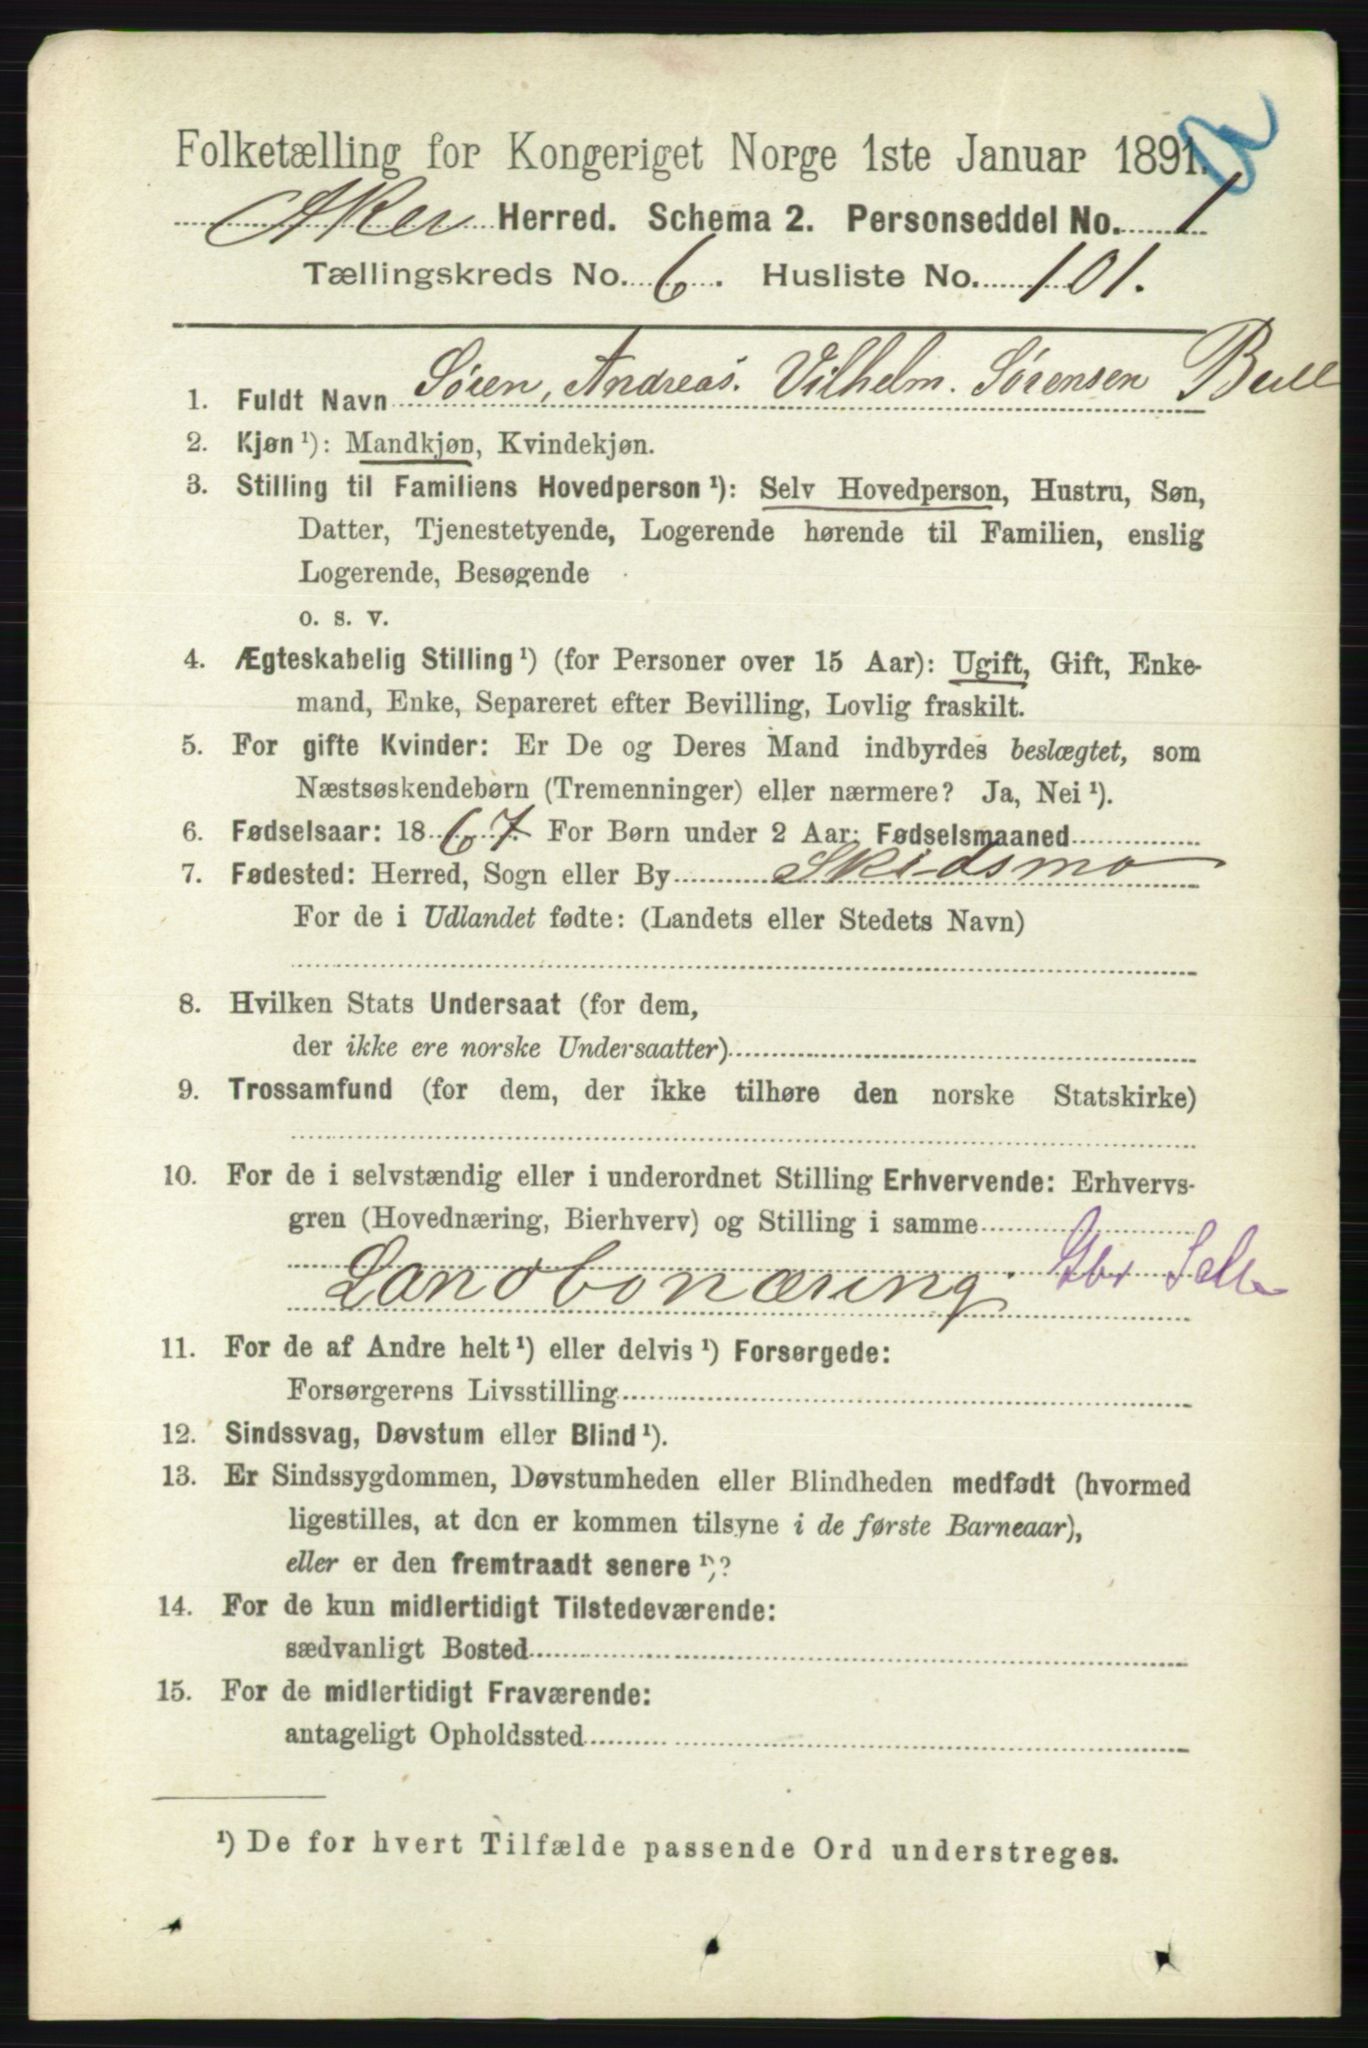 Folketælling for Kongeriget Norge 1ste Januar 1891.
Aker Herred. Schema 2. Personseddel No. 1
Tællingskreds No. 6. Husliste No. 101.
1. Fuldt Navn Søren, Andreas. Vilhelm. Sørensen Bull
2. Kjøn ¹): Mandkjøn, Kvindekjøn.
3. Stilling til Familiens Hovedperson ¹): Selv Hovedperson, Hustru, Søn,
Datter, Tjenestetyende, Logerende hørende til Familien, enslig
Logerende, Besøgende
o. s. v.
4. Ægteskabelig Stilling ¹) (for Personer over 15 Aar): Ugift, Gift, Enke-
mand, Enke, Separeret efter Bevilling, Lovlig fraskilt.
5. For gifte Kvinder: Er De og Deres Mand indbyrdes beslægtet, som
Næstsøskendebørn (Tremenninger) eller nærmere? Ja, Nei ¹).
6. Fødselsaar: 1867. For Børn under 2 Aar: Fødselsmaaned
7. Fødested: Herred, Sogn eller By Skidsmo
For de i Udlandet fødte: (Landets eller Stedets Navn)
8. Hvilken Stats Undersaat (for dem,
der ikke ere norske Undersaatter)
9. Trossamfund (for dem, der ikke tilhøre den norske Statskirke)
10. For de i selvstændig eller i underordnet Stilling Erhvervende: Erhvervs-
gren (Hovednæring, Bierhverv) og Stilling i samme
Landbonæring. Gbr
11. For de af Andre helt ¹) eller delvis ¹) Forsørgede:
Forsørgerens Livsstilling
12. Sindssvag, Døvstum eller Blind ¹).
13. Er Sindssygdommen, Døvstumheden eller Blindheden medfødt (hvormed
ligestilles, at den er kommen tilsyne i de første Barneaar),
eller er den fremtraadt senere ¹)?
14. For de kun midlertidigt Tilstedeværende:
sædvanligt Bosted
15. For de midlertidigt Fraværende:
antageligt Opholdssted
¹) De for hvert Tilfælde passende Ord understreges.